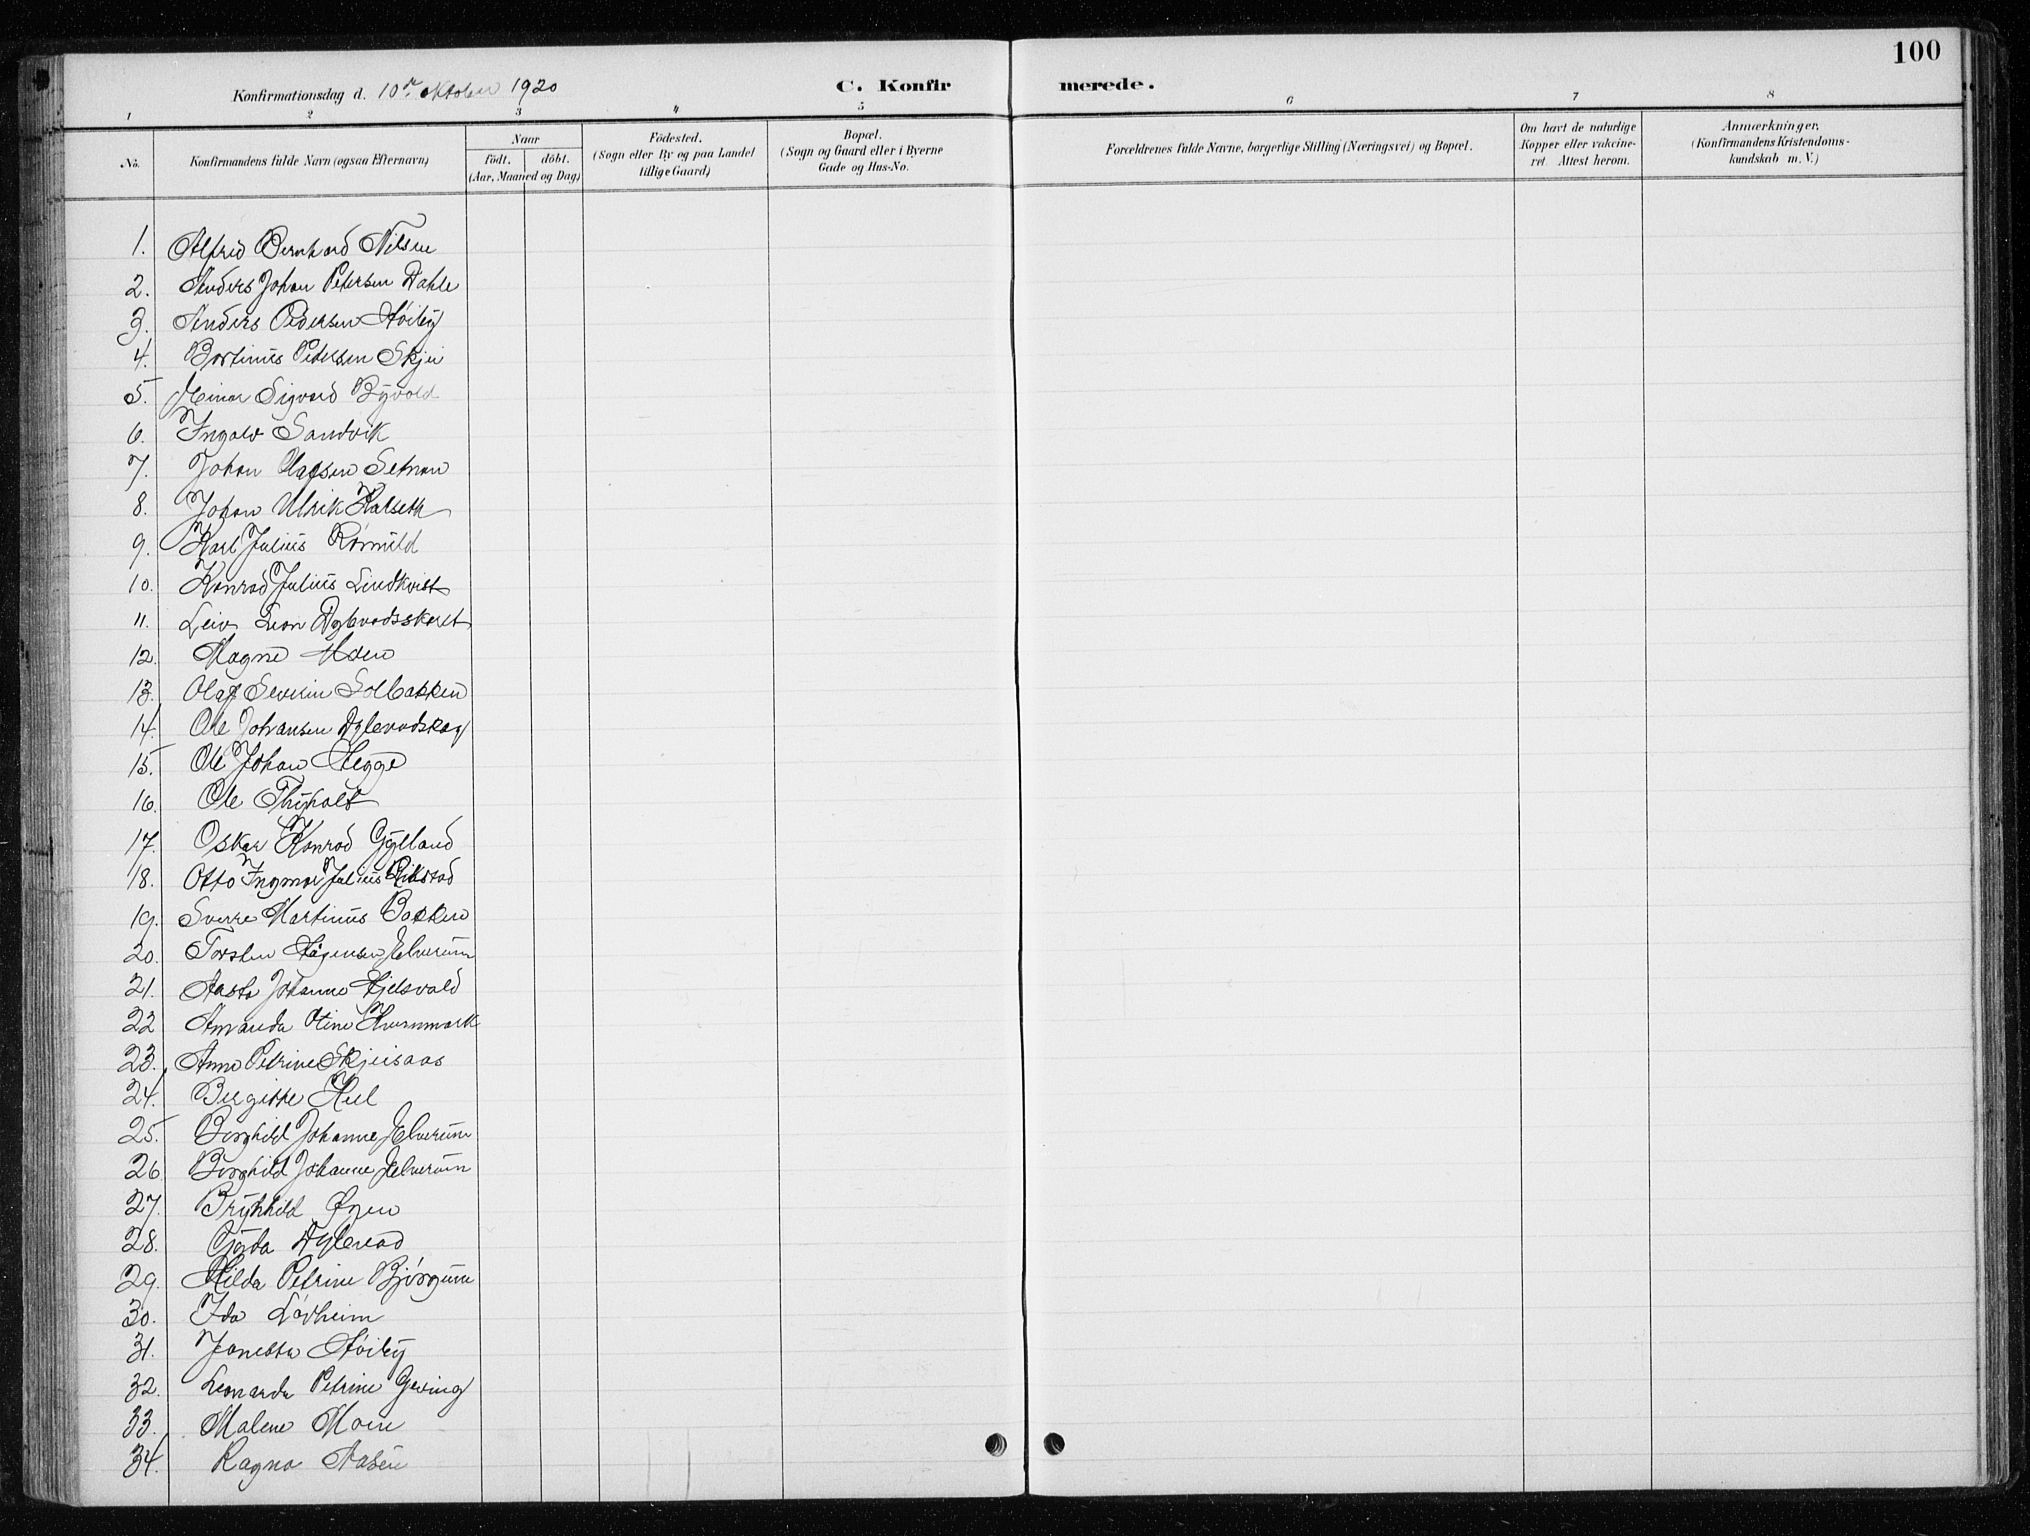 100
Konfirmationsdag d. 10de oktober 1920
C. Konfirmerede.
1 2 3 4 5 6 7 8
No.
Konfirmandens fulde Navn (ogsaa Efternavn)
Naar
født. døbt.
(Aar, Maaned og Dag)
Fødested.
(Sogn eller By og paa Landet
tillige Gaard)
Bopæl.
(Sogn og Gaard eller i Byerne
Gade og Hus-No.
Forældrenes fulde Navne, borgerlige Stilling (Næringsvei) og Bopæl.
Om havt de naturlige
Kopper eller vakcine-
ret. Attest herom.
Anmærkninger.
(Konfirmandens Kristendoms-
kundskab m. V.)
1. Alfred Bernhard Nilsen
2. Anders Johan Petersen Dahle
3. Anders Pedersen Høiby
4. Bortinus Petersen Skjei
5. Einar Sigvard Byvold
6. Ingolv Sandvik
7. Johan Olafsen Setnan
8. Johan Ulrik Halseth
9. Karl Julius Rømuld
10. Konrad Julius Lindkvist
11. Leiv Leon
12. Magne Moen
13. Olaf Severin Solbakken
14. Ole Johansen
15. Ole Johan Hegge
16. Ole Thyholt
17. Oskar Konrad Gylland
18. Otto Ingmar Julius
19. Sverre Martinus Bakken
20. Torsten Elverum
21. Aasta Johanne
22 Amanda Otine Kvernmark
23. Anne Petrine Skjeisaas
24. Birgitte
25. Borghild Johanne Elverum
26 Borghild Johanne Elverum
27. Brynhild Øyen
28. Gyda
29. Hilda Petrine Bjørgum
30. Ida
31. Janetta Høiby
32. Leonarda Petrine Geving
33. Malene Moen
34. Ragna Aasen